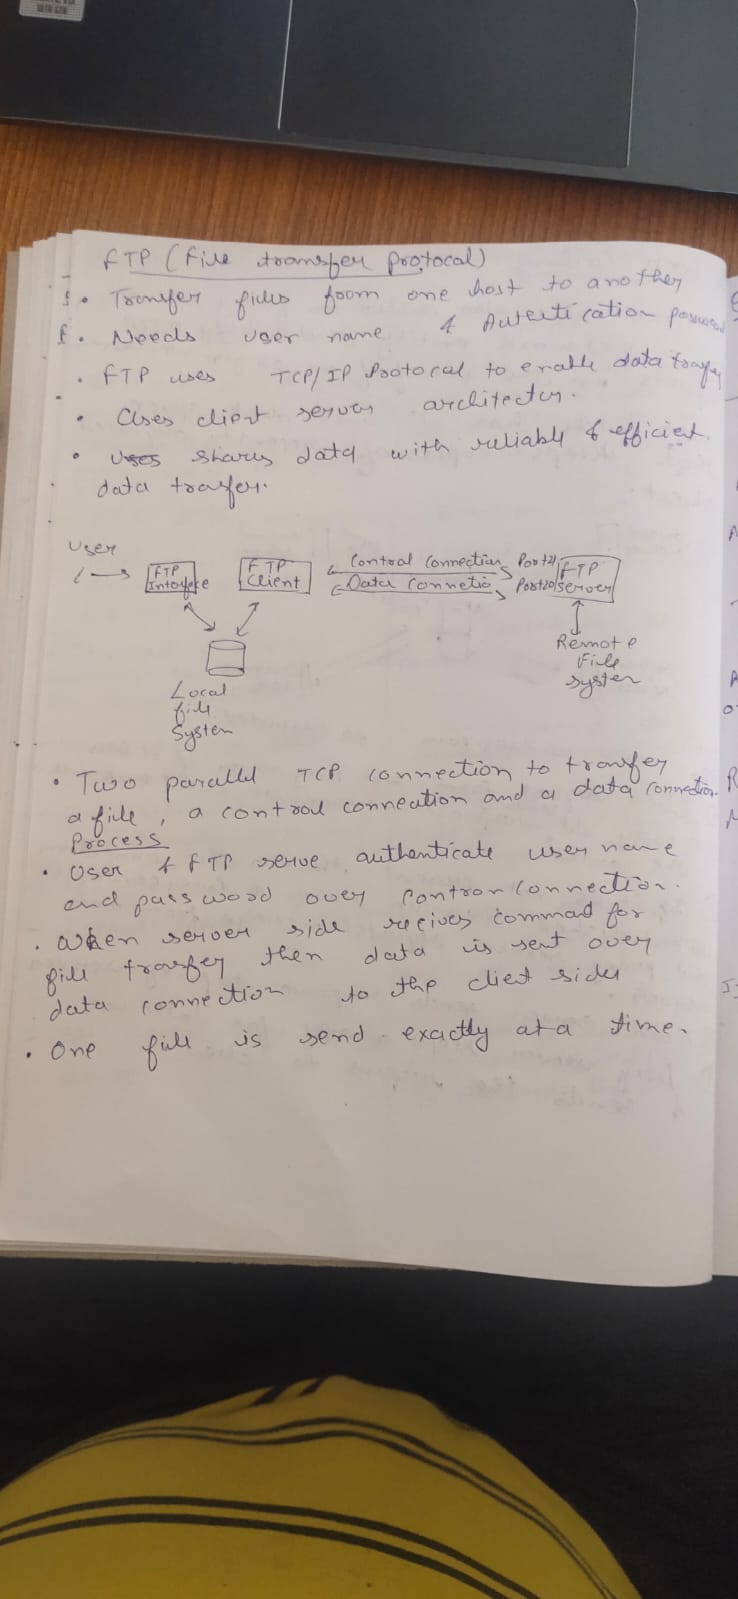 FTP (File transfer protocal)
• Transfer files from one host to another
• Needs user name & Autenti cation password
• FTP uses TCP/IP Protocal to enable data
• Uses client server architector.
• Uses shares data with reliable & efficient.
data trasfer.
User
FTP Interface
FTP Client
Control Connection Port 21
Data Connectio Port 20
FTP Server
Local
file
System
Remote
File
system
• Two parallel TCP connection to transfer
a file, a control connection and a data connection.
Process
• User & FTP serve authenticate user name
and password over connection.
• When server side recives commad for
file trasfer then data is sent over
data connection to the client side
• One file is send exactly at a time.